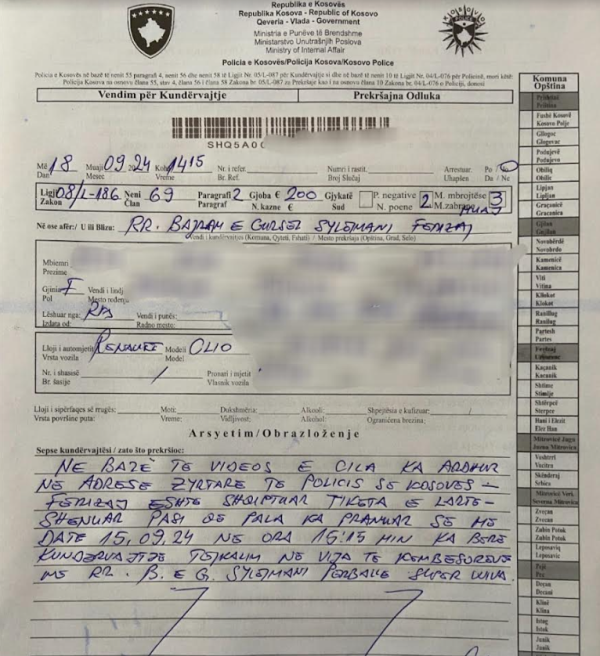 Republika e Kosovës
Republika Kosova - Republic of Kosovo
Qeveria - Vlada - Government
Ministria e Punëve të Brendshme
Ministarstvo Unutrašnjih Poslova
Ministry of Internal Affair
Policia e Kosovës/Policija Kosova/Kosovo Police
Vendim për Kundërvajtje
Prekršajna Odluka
SHQ5A00
Më 18 Muaji 09.24 Koha 1415 Nr. i refer. Numri i rastit Arrestuar: Po / Jo
Dan Mesec Br. Ref. Broj Slučaj Uhapšen Da / Ne
Ligji 08/L-186 Neni 69 Paragrafi 2 Gjoba € 200 Gjykatë P. negative 2 M. mbrojtëse 3
Zakon Član Paragraf N. kazne € Sud N. poene M. zabrane MUAJ
Në ose afër:/ U ili Blizu: RR. BAJRAM E GURSEL SYLEMANI FERIZAJ
Vendi i kundërvajtjes (Komuna, Qyteti, Fshati) / Mesto prekršaja (Opština, Grad, Selo)
Mbiemri
Prezime
Gjinia F Vendi i lindj
Pol Mesto rođenja
Lëshuar nga: RKS Vendi i punës:
Izdata od: Radno mesto:
Lloji i automjetit RENAULT Modeli CLIO
Vrsta vozila Model
Nr. i shasisë / Pronari i mjetit
Br. šasije Vlasnik vozila
Lloji i sipërfaqes së rrugës: Moti: Dukshmëria: Alkool: Shpejtësia e kufizuar:
Vrsta površine puta: Vreme: Vidljivost: Alkohol: Ograničena brzina:
Arsyetim/Obrazloženje
Sepse kundërvajtësi / zato što prekršioc:
NE BAZE TE VIDEOS E CILA KA ARDHUR
NE ADRESE ZYRTARE TE POLICIS SE KOSOVES -
FERIZAJ ESHTE SHQIPTUAR TIKETA E LARTE-
SHENUAR PASI QE PALA KA PRANUAR SE ME
DATE 15.09.24 NE ORA 15:15 MIN KA BERE
KUNDERVAJTJE TEJKALIM NE VIJA TE KEMBESOREVE
ME RR. B. E G. SYLEJMANI PERBALLE SUPER VIVA.
Komuna
Opština
Prishtinë
Priština
Fushë Kosovë
Kosovo Polje
Gllogoc
Glogovac
Podujevë
Podujevo
Obiliq
Obilić
Lipjan
Lipljan
Graçanicë
Gracanica
Gjilan
Gnjilane
Novobërdë
Novobrdo
Kamenicë
Kamenica
Viti
Vitina
Kllokot
Klokot
Ranillug
Ranilug
Partesh
Parteš
Ferizaj
Uroševac
Kaçanik
Kačanik
Shtime
Štimlje
Shtërpcë
Štrpce
Hani i Elezit
Elez Han
Mitrovicë Jugu
Južna Mitrovica
Vushtrri
Vučitrn
Skënderaj
Srbica
Mitrovicë Veri.
Severna Mitrovica
Zveçan
Zvečan
Zubin Potok
Zubin Potok
Leposaviq
Leposavić
Pejë
Peć
Deçan
Dečani
Klinë
Klina
Istog
Istok
Junik
Junik